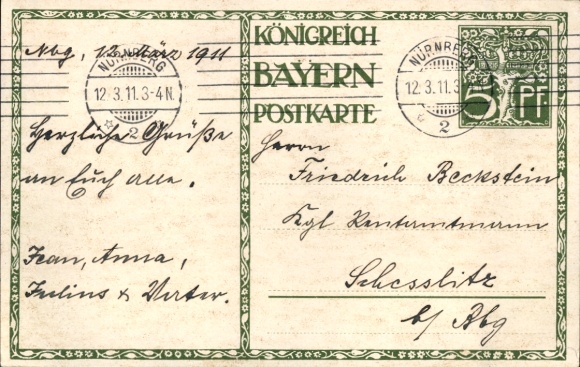 Nbg, 12. März 1911
Herzliche Grüße
an Euch alle.
Jean, Anna,
Julius & Vater.
KÖNIGREICH
BAYERN
POSTKARTE
NÜRNBERG
12.3.11.3-4N.
2
NÜRNBERG
12.3.11.3
2
5 PF
Herrn
Friedrich Beckstein
Kgl Rentamtmann
Schesslitz
b/ Bbg